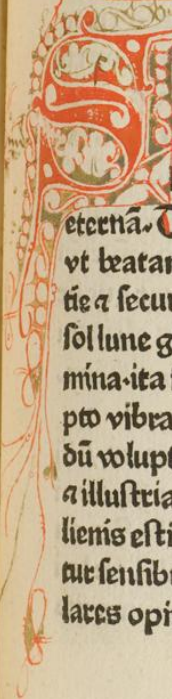 S
eternā. T
vt beatar
tie ⁊ secur
sol lune g
mina·ita
pto vibra
dū volupt
⁊ illustria
lienis esti
tur sensib
lares opi